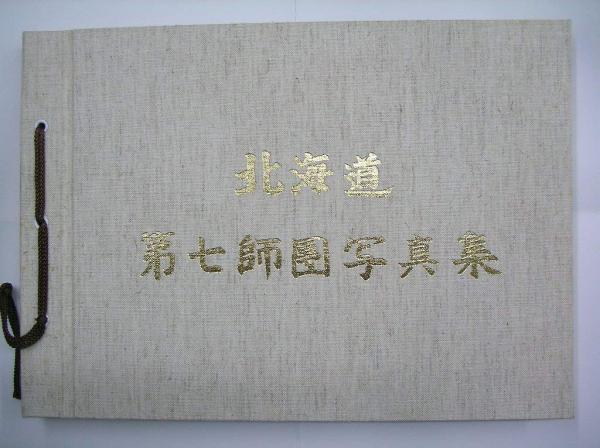 北海道
第七師團写真集